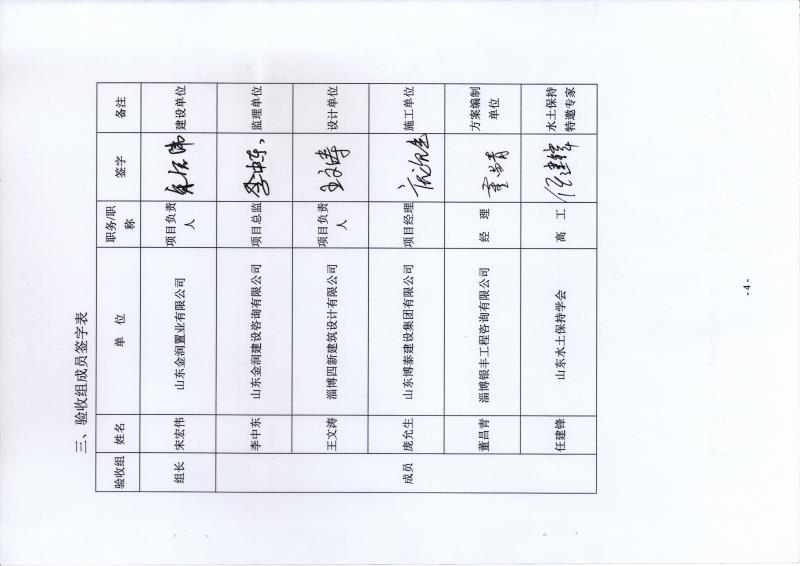 三、验收组成员签字表
验收组 姓名 单 位 职务/职称 签字 备注
组长 宋宏伟 山东金润置业有限公司 项目负责人 宋宏伟 建设单位
成员
李中东 山东金润建设咨询有限公司 项目总监 李中东 监理单位
王文涛 淄博四新建筑设计有限公司 项目负责人 王文涛 设计单位
庞允生 山东博泰建设集团有限公司 项目经理 庞允生 施工单位
董昌青 淄博银丰工程咨询有限公司 经 理 董昌青 方案编制单位
任建锋 山东水土保持学会 高 工 任建锋 水土保持特邀专家
- 4 -